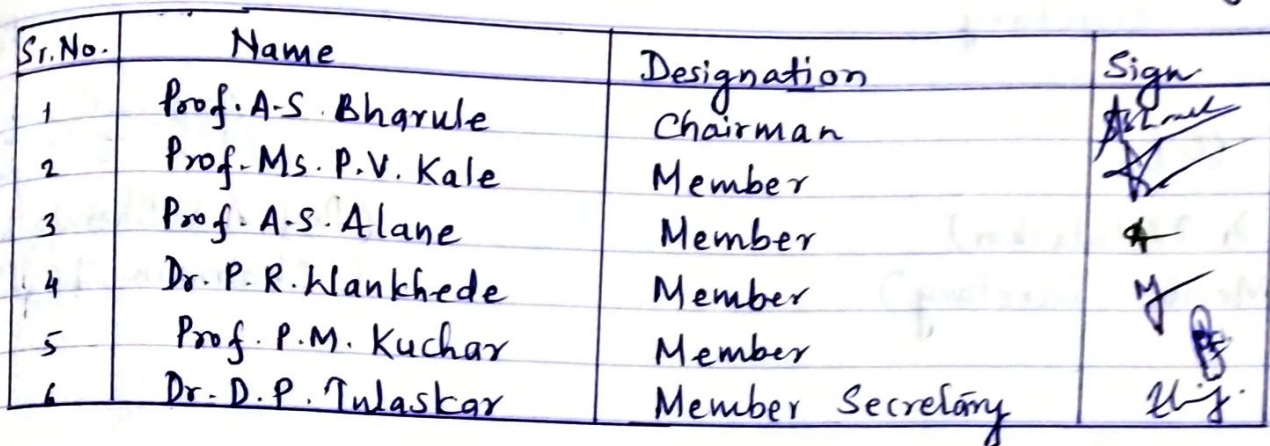 Sr.No. Name Designation Sign
1 Prof. A-S. Bharule Chairman
2 Prof. Ms. P.V. Kale Member
3 Prof. A-S. Alane Member
4 Dr. P. R. Wankhede Member
5 Prof. P.M. Kuchar Member
6 Dr. D. P. Tulaskar Member Secretary